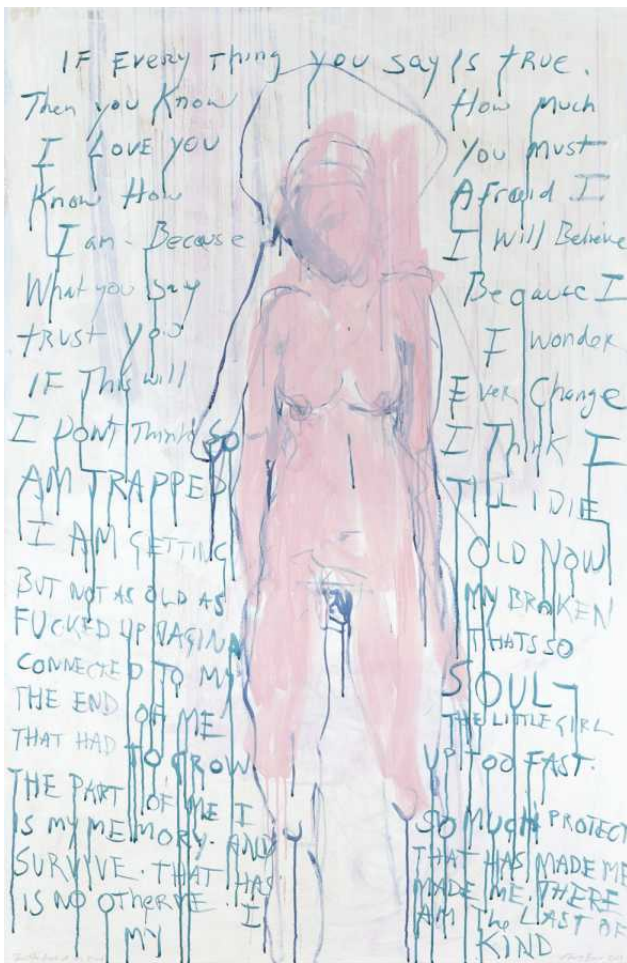 IF EVERY Thing you say Is tRUE.
Then you Know How Much
I LOVE YOU You Must
Know How Afraid I
I am. Because I Will Believe
What you say Because I
trust you I wonder
IF This will Ever Change
I DONT Think SO I Think I
AM TRAPPED TILL I DIE
I AM GETTING OLD NOW
BUT NOT AS OLD AS MY BROKEN
FUCKED UP VAGINA THATS SO
CONNECTED TO MY SOUL
THE END OF ME THE LITTLE GIRL
THAT HAD TO GROW UP TOO FAST.
THE PART OF ME I SO MUCH PROTECT
IS MY MEMORY. AND THAT HAS MADE ME
SURVIVE. THAT HAS MADE ME. THERE
IS NO OtherME I AM The LAST OF
MY KIND